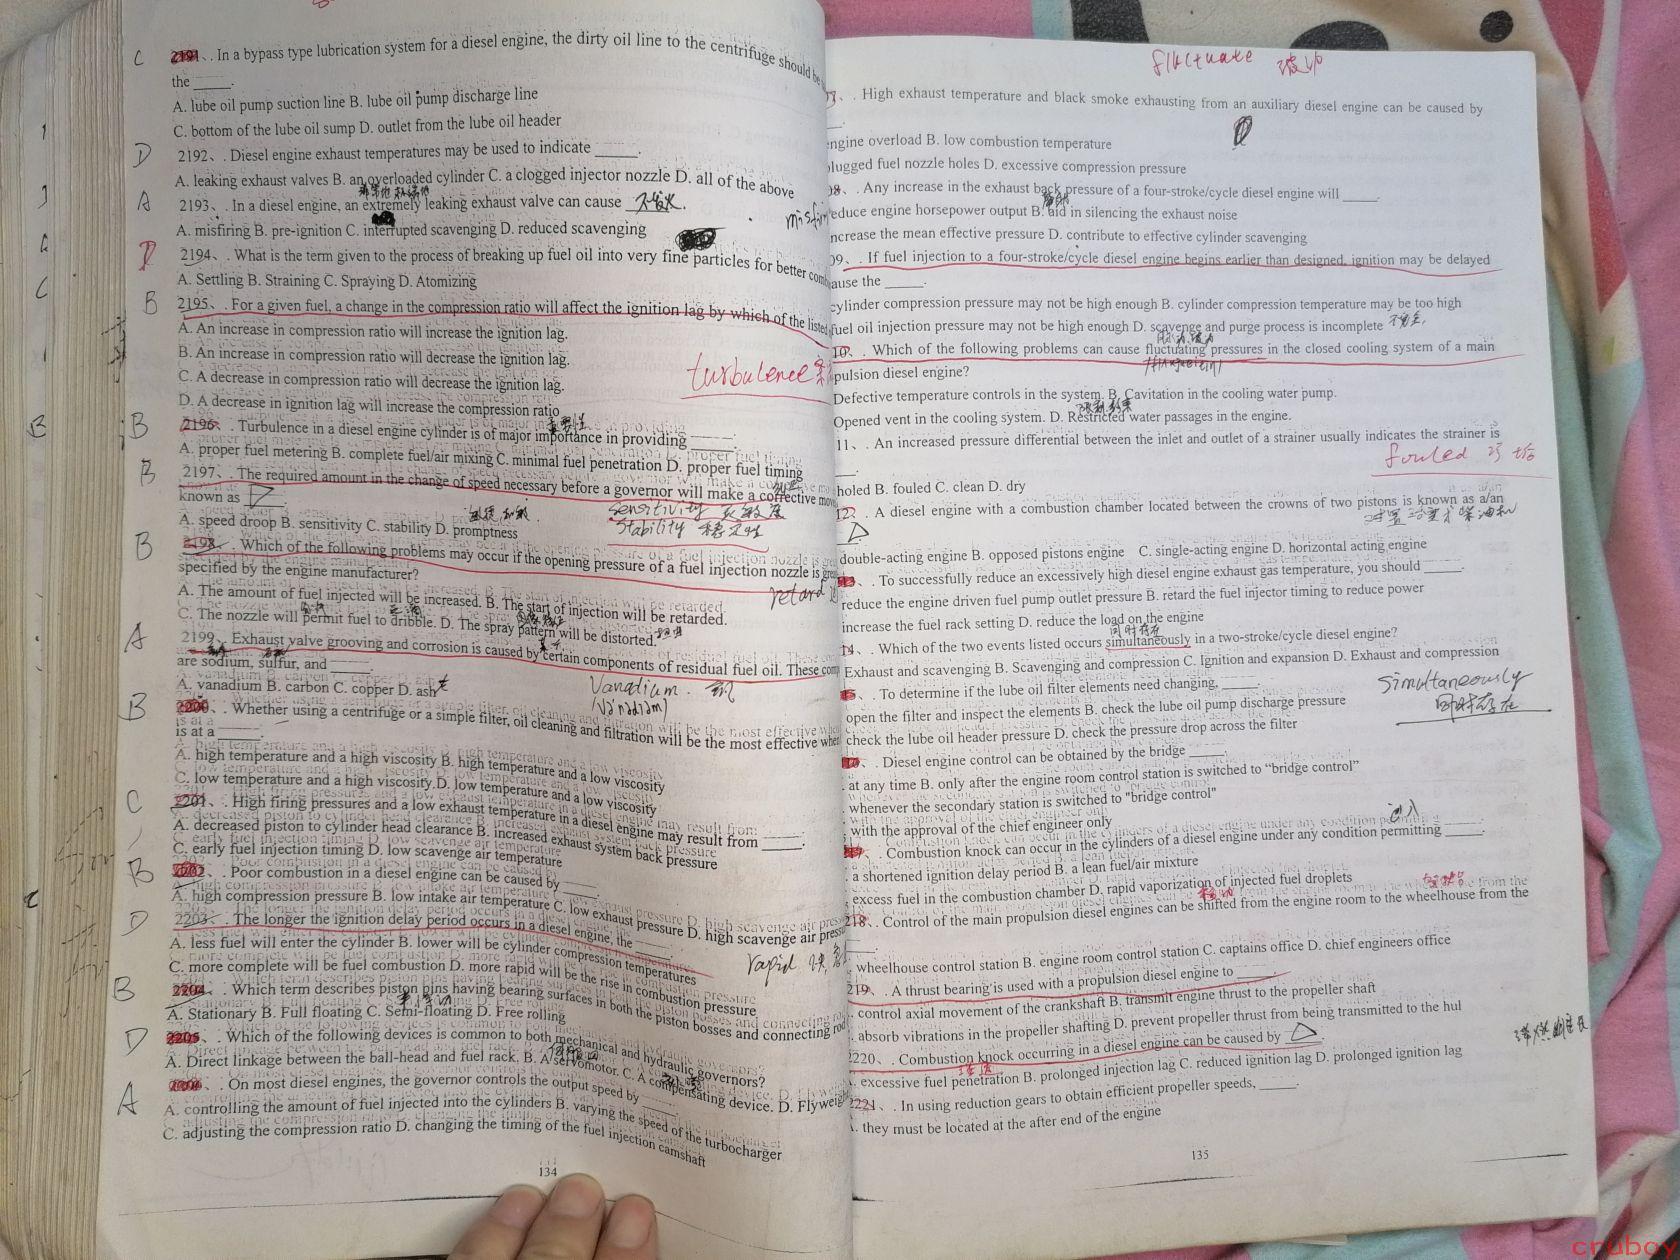 C 2191、. In a bypass type lubrication system for a diesel engine, the dirty oil line to the centrifuge should be
the _____.
A. lube oil pump suction line B. lube oil pump discharge line
C. bottom of the lube oil sump D. outlet from the lube oil header
D 2192、. Diesel engine exhaust temperatures may be used to indicate _____.
A. leaking exhaust valves B. an overloaded cylinder C. a clogged injector nozzle D. all of the above
A 2193、. In a diesel engine, an extremely leaking exhaust valve can cause _____.
A. misfiring B. pre-ignition C. interrupted scavenging D. reduced scavenging
D 2194、. What is the term given to the process of breaking up fuel oil into very fine particles for better comb
A. Settling B. Straining C. Spraying D. Atomizing
B 2195、. For a given fuel, a change in the compression ratio will affect the ignition lag by which of the listed
A. An increase in compression ratio will increase the ignition lag.
B. An increase in compression ratio will decrease the ignition lag.
C. A decrease in compression ratio will decrease the ignition lag.
turbulence
D. A decrease in ignition lag will increase the compression ratio
B 2196、. Turbulence in a diesel engine cylinder is of major importance in providing _____.
重要性
A. proper fuel metering B. complete fuel/air mixing C. minimal fuel penetration D. proper fuel timing
B 2197、. The required amount in the change of speed necessary before a governor will make a corrective move
known as _____.
sensitivity 灵敏度
A. speed droop B. sensitivity C. stability D. promptness
stability 稳定性
B 2198、. Which of the following problems may occur if the opening pressure of a fuel injection nozzle is grea
specified by the engine manufacturer?
retard
A. The amount of fuel injected will be increased. B. The start of injection will be retarded.
C. The nozzle will permit fuel to dribble. D. The spray pattern will be distorted.
A 2199、. Exhaust valve grooving and corrosion is caused by certain components of residual fuel oil. These comp
are sodium, sulfur, and _____.
A. vanadium B. carbon C. copper D. ash
Vanadium. 钒
B 2200、. Whether using a centrifuge or a simple filter, oil cleaning and filtration will be the most effective when
is at a _____.
A. high temperature and a high viscosity B. high temperature and a low viscosity
C. low temperature and a high viscosity D. low temperature and a low viscosity
C 2201、. High firing pressures and a low exhaust temperature in a diesel engine may result from _____.
A. decreased piston to cylinder head clearance B. increased exhaust system back pressure
C. early fuel injection timing D. low scavenge air temperature
B 2202、. Poor combustion in a diesel engine can be caused by _____.
A. high compression pressure B. low intake air temperature C. low exhaust pressure D. high scavenge air pressu
D 2203、. The longer the ignition delay period occurs in a diesel engine, the _____.
A. less fuel will enter the cylinder B. lower will be cylinder compression temperatures
rapid
C. more complete will be fuel combustion D. more rapid will be the rise in combustion pressure
B 2204、. Which term describes piston pins having bearing surfaces in both the piston bosses and connecting rod
A. Stationary B. Full floating C. Semi-floating D. Free rolling
D 2205、. Which of the following devices is common to both mechanical and hydraulic governors?
A. Direct linkage between the ball-head and fuel rack. B. A servomotor. C. A compensating device. D. Flyweigh
A 2206、. On most diesel engines, the governor controls the output speed by _____.
A. controlling the amount of fuel injected into the cylinders B. varying the speed of the turbocharger
C. adjusting the compression ratio D. changing the timing of the fuel injection camshaft
134
fluctuate 波动
、. High exhaust temperature and black smoke exhausting from an auxiliary diesel engine can be caused by
ngine overload B. low combustion temperature
lugged fuel nozzle holes D. excessive compression pressure
08、. Any increase in the exhaust back pressure of a four-stroke/cycle diesel engine will _____.
educe engine horsepower output B. aid in silencing the exhaust noise
ncrease the mean effective pressure D. contribute to effective cylinder scavenging
09、. If fuel injection to a four-stroke/cycle diesel engine begins earlier than designed, ignition may be delayed
ause the _____.
cylinder compression pressure may not be high enough B. cylinder compression temperature may be too high
fuel oil injection pressure may not be high enough D. scavenge and purge process is incomplete
10、. Which of the following problems can cause fluctuating pressures in the closed cooling system of a main
pulsion diesel engine?
Defective temperature controls in the system. B. Cavitation in the cooling water pump.
Opened vent in the cooling system. D. Restricted water passages in the engine.
11、. An increased pressure differential between the inlet and outlet of a strainer usually indicates the strainer is
fouled 污垢
holed B. fouled C. clean D. dry
12、. A diesel engine with a combustion chamber located between the crowns of two pistons is known as a/an
对置活塞式柴油机
double-acting engine B. opposed pistons engine C. single-acting engine D. horizontal acting engine
13、. To successfully reduce an excessively high diesel engine exhaust gas temperature, you should _____.
reduce the engine driven fuel pump outlet pressure B. retard the fuel injector timing to reduce power
increase the fuel rack setting D. reduce the load on the engine
同时存在
14、. Which of the two events listed occurs simultaneously in a two-stroke/cycle diesel engine?
Exhaust and scavenging B. Scavenging and compression C. Ignition and expansion D. Exhaust and compression
simultaneously
同时存在
15、. To determine if the lube oil filter elements need changing, _____.
open the filter and inspect the elements B. check the lube oil pump discharge pressure
check the lube oil header pressure D. check the pressure drop across the filter
16、. Diesel engine control can be obtained by the bridge _____.
at any time B. only after the engine room control station is switched to “bridge control”
whenever the secondary station is switched to "bridge control"
with the approval of the chief engineer only
. Combustion knock can occur in the cylinders of a diesel engine under any condition permitting _____.
a shortened ignition delay period B. a lean fuel/air mixture
excess fuel in the combustion chamber D. rapid vaporization of injected fuel droplets
218、. Control of the main propulsion diesel engines can be shifted from the engine room to the wheelhouse from the
_____.
wheelhouse control station B. engine room control station C. captains office D. chief engineers office
219、. A thrust bearing is used with a propulsion diesel engine to _____.
control axial movement of the crankshaft B. transmit engine thrust to the propeller shaft
absorb vibrations in the propeller shafting D. prevent propeller thrust from being transmitted to the hul
2220、. Combustion knock occurring in a diesel engine can be caused by _____.
. excessive fuel penetration B. prolonged injection lag C. reduced ignition lag D. prolonged ignition lag
2221、. In using reduction gears to obtain efficient propeller speeds, _____.
. they must be located at the after end of the engine
135
cruboy